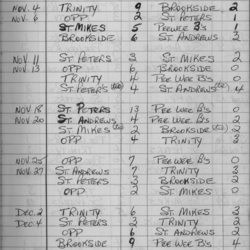 Nov. 4 Trinity 9 Brookside 2
Nov. 6 OPP 2 St Peters 1
St. Mikes 5 PeeWee B's 1
Brookside 6 St Andrews 2
Nov 11 St. Peters 3 St. Mikes 2
Nov 13 OPP 6 Brookside 0
Trinity 4 Pee Wee B's 0
St Peter's St Andrews 4
Nov 18 St. Peters 13 Pee Wee B's 0
Nov 20 St. Andrews 4 Pee Wee B's 2
St. Mikes 2 Brookside 2
OPP 4 Trinity 3
Nov 25 OPP 7 Pee Wee B's 0
Nov 27 St. Andrews 7 Trinity 3
St Peters 3 Brookside 2
OPP 2 St Mikes 0
Dec. 2 Trinity 6 St. Mikes 3
Dec. 4 St Peters 2 Trinity 2
OPP 2 St. Andrews 2
Brookside 9 Pee Wee B's